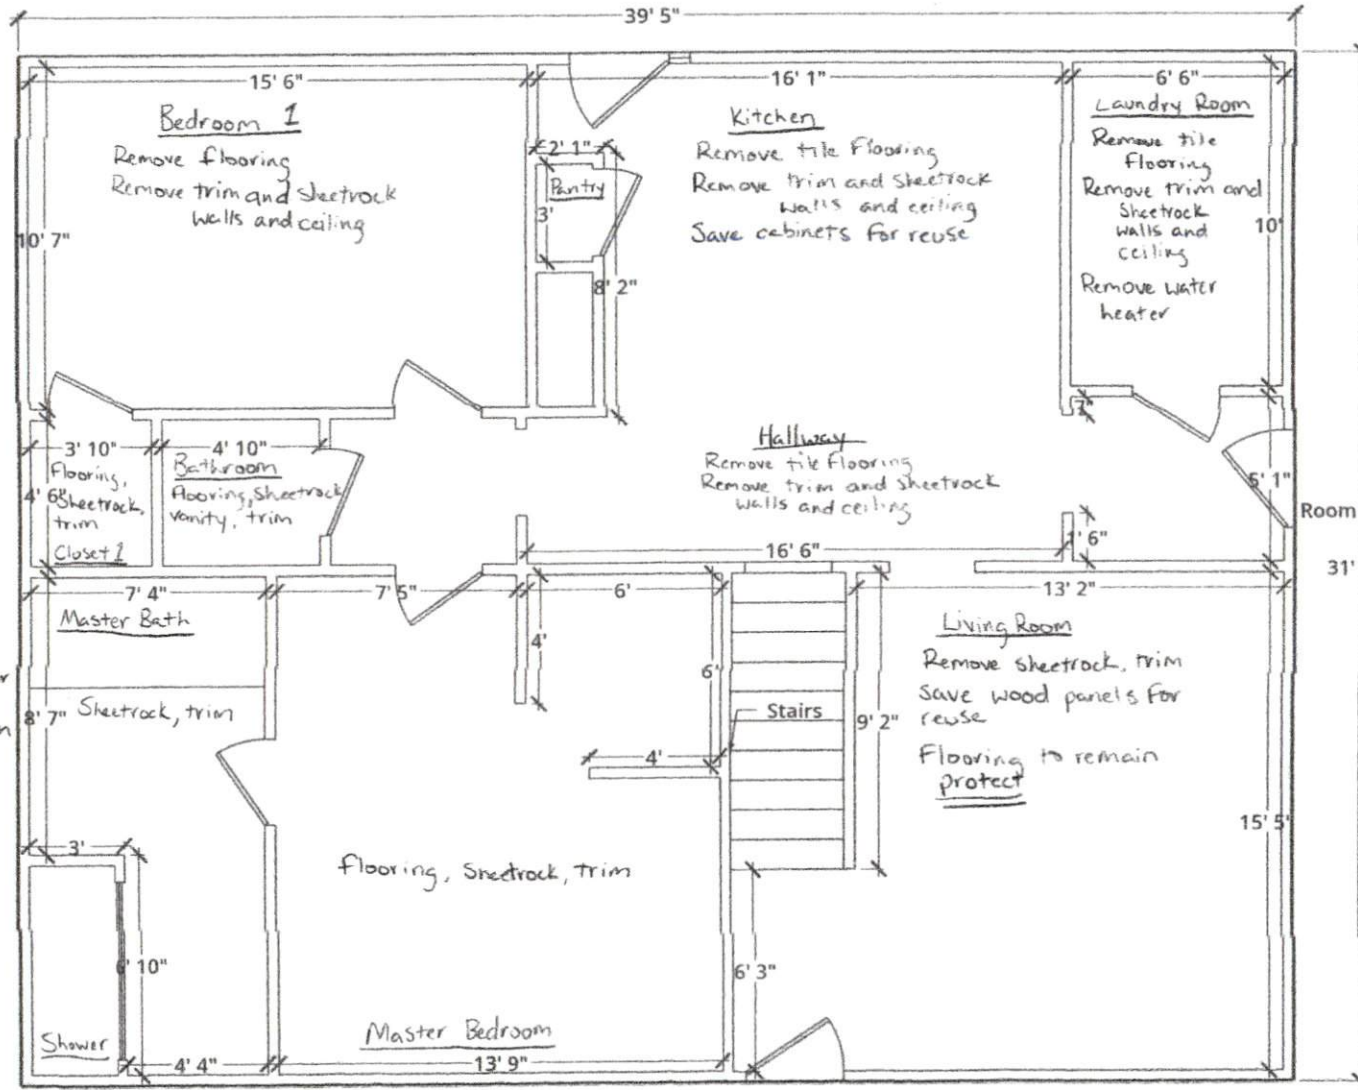 39' 5"
15' 6"
16' 1"
6' 6"
Bedroom 1
Remove flooring
Remove trim and sheetrock
walls and ceiling
10' 7"
2' 1"
Pantry
3'
8' 2"
Kitchen
Remove tile Flooring
Remove trim and sheetrock
walls and ceiling
Save cabinets for reuse
Laundry Room
Remove tile
Flooring
Remove trim and
Sheetrock
walls and
ceiling
Remove water
heater
10'
7"
3' 10"
Flooring,
4' 6"
Sheetrock,
trim
Closet 1
4' 10"
Bathroom
Flooring, Sheetrock
vanity, trim
Hallway
Remove tile Flooring
Remove trim and sheetrock
walls and ceiling
16' 6"
1' 6"
5' 1"
Room
31'
7' 4"
7' 5"
6'
13' 2"
Master Bath
Sheetrock, trim
8' 7"
4'
6'
4'
Stairs
9' 2"
Living Room
Remove sheetrock, trim
Save wood panels for
reuse
Flooring to remain
protect
15' 5"
3'
6' 10"
Shower
4' 4"
flooring, Sheetrock, trim
Master Bedroom
13' 9"
6' 3"